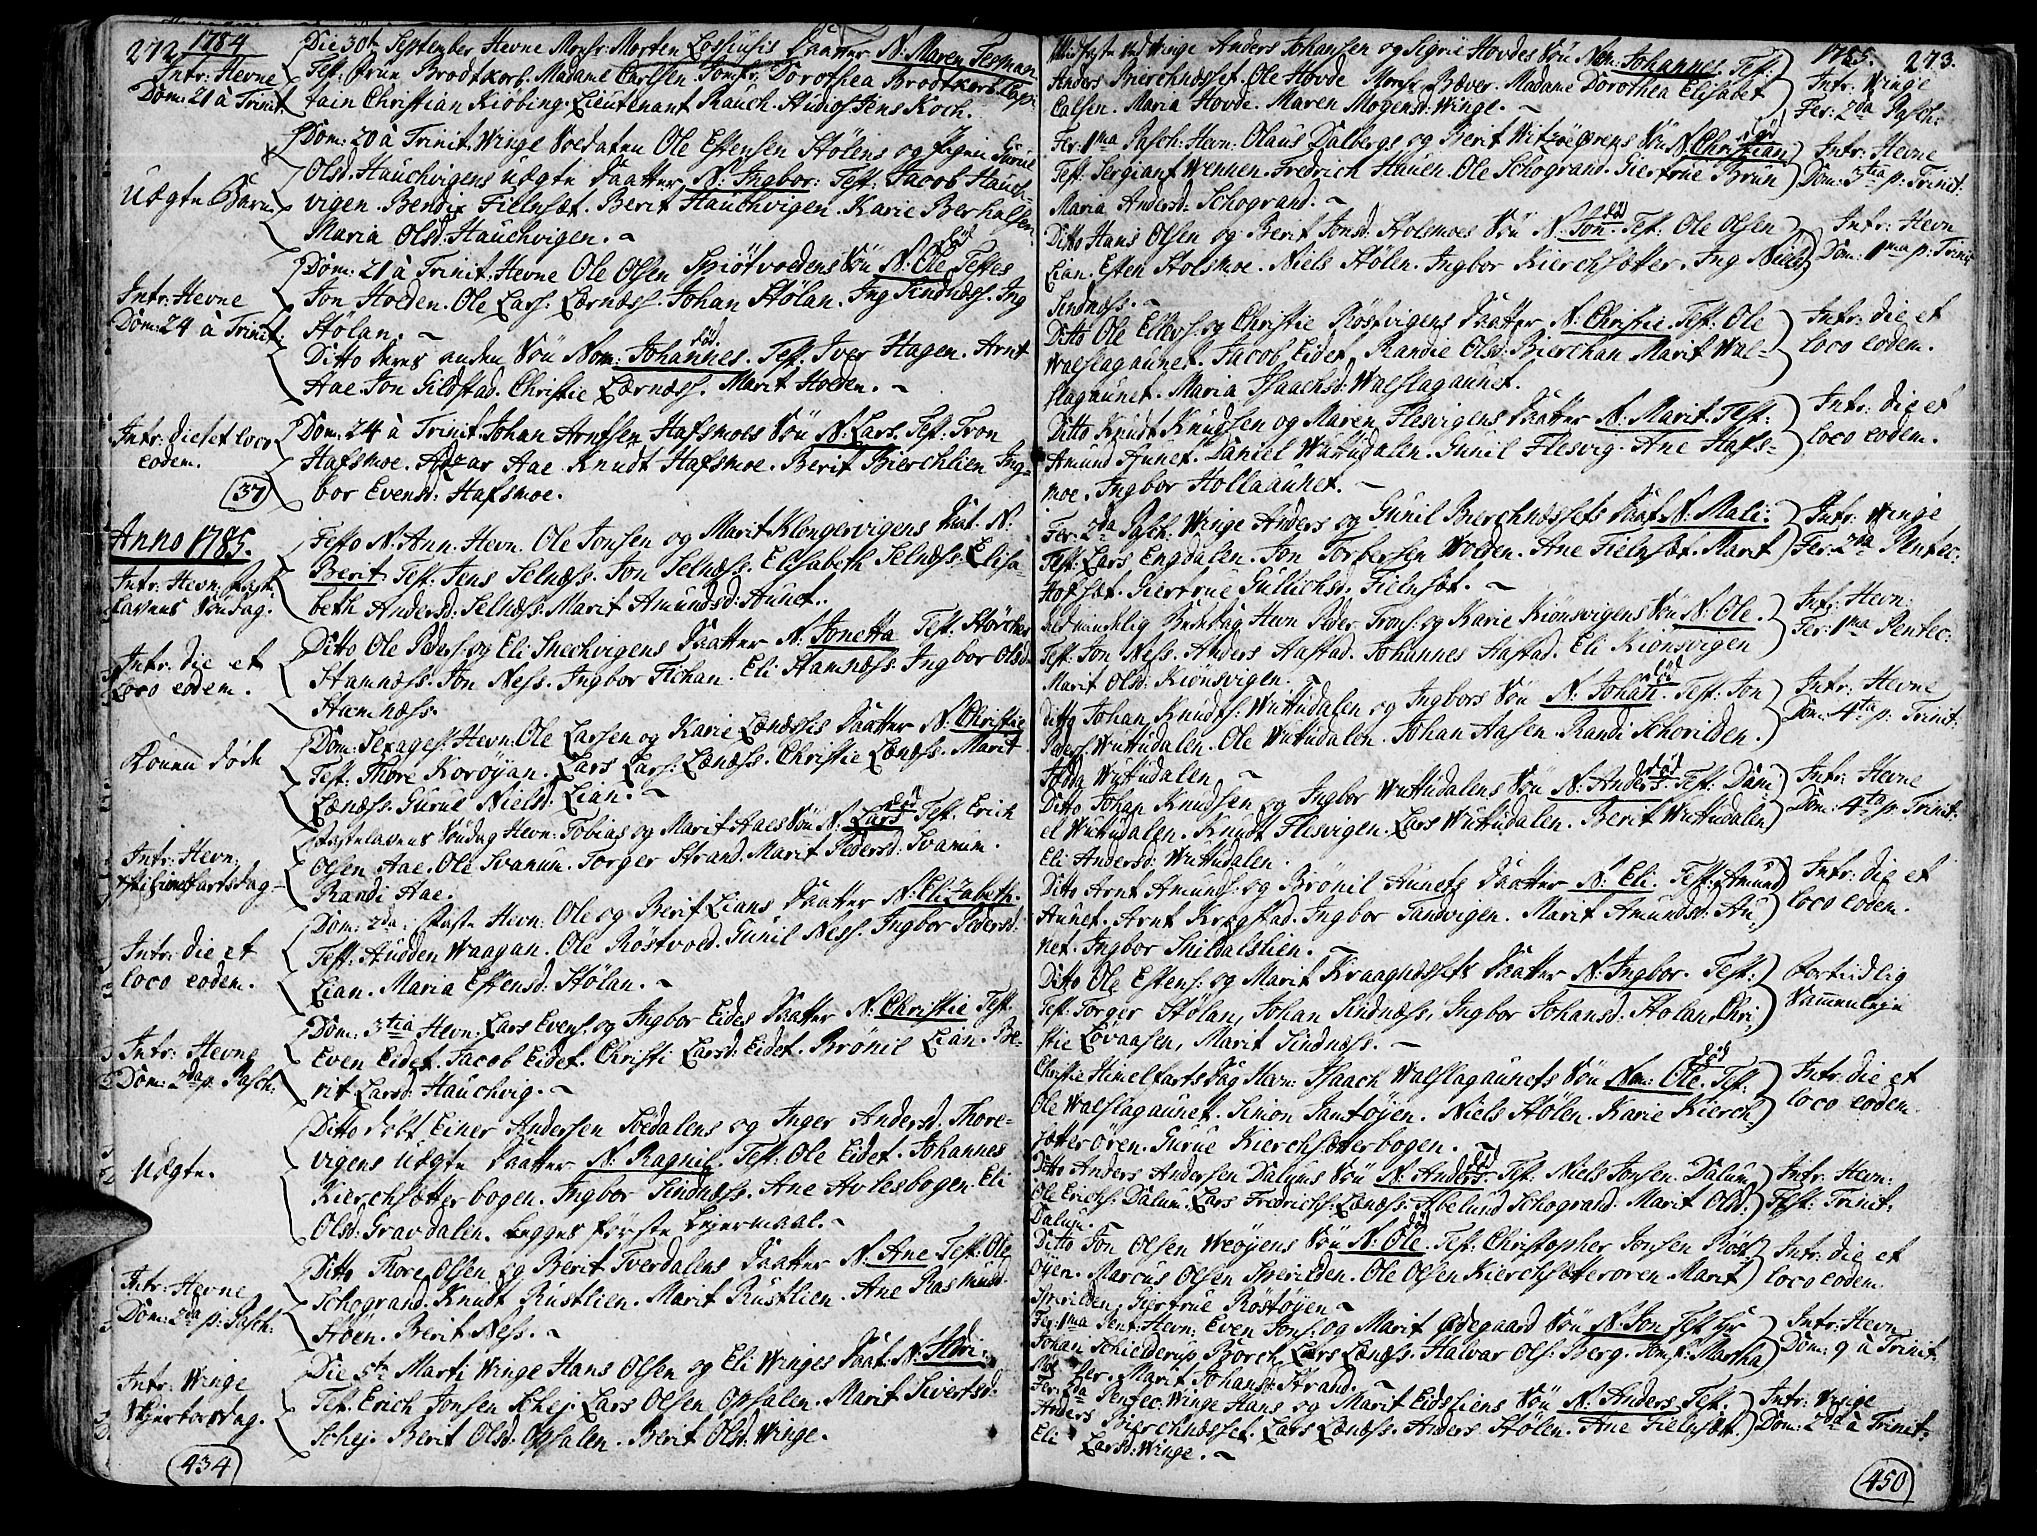 272. 1784
Die 30te September Hevne Monsr: Morten Lossiusis Daatter N: Maren Terman
Test: Frun Brodtkorb. Madame Carlsen. Jomfr. Dorothea Brodtkorb. Capi
tain Christian Kiøbing. Lieutenant Rauch. Studios: Jens Koch.
Intr: Hevne
Dom: 21 à Trinit.
Dom: 20 à Trinit. Winge Soldaten Ole Estensen Stølens og Pigen Gurue
Olsd. Hauchvigens uægte Daatter N: Ingbor: Test: Jacob Hauch-
vigen. Bendix Fielnset. Berit Hauchvigen. Karie Berhalsen.
Maria Olsd: Hauchvigen.
Uægte Barn
Dom: 21 à Trinit. Hevne Ole Olsen Spiøtvoldens Søn N: Ole Testes
død
Jon Hoeden. Ole Lars: Lernæss. Johan Stølan. Ing Sindnæss. Ing
Stølan.
Intr: Hevne
Dom: 24 à Trinit:
Ditto deres anden Søn Nom: Johannes. Test: Iver Hagen. Arnt
død
Aae. Jon Gildstad. Christie Lernæss. Marit Hoeden.
Dom: 24 à Trinit. Johan Arntsen Hafsmoes Søn N: Lars. Test: Tron
Hafsmoe. Aae. Knudt Hafsmoe. Berit Bierchlien. Ing-
bor Evensd: Hafsmoe.
Intr: die et loco
eodem.
37
Anno 1785.
Festo N. Ann. Hevn. Ole Jonsen og Marit Klengervigens Daat. N:
Berit. Test: Jens Selnæss. Jon Selnæss. Elisabeth Selnæss. Elisa-
beth Andersd: Selnæss. Marit Amundsd: Aunet.
Intr: Hevn: Faste-
lavens Søndag.
Ditto Ole Peders: og Eli Snechvigens Daatter N: Jonetta Test: Størcher
Stamnæss. Jon Ness. Ingbor Fichan. Eli Stamnæss. Ingbor Olsd
Stamnæss.
Intr: die et
loco eodem.
Dom: Sexages: Hevn: Ole Larsen og Karie Lænæssis Daatter N: Christie
Test: Thore Korøyan. Lars Lars: Lænæss. Christie Lænæss. Marit
Lænæss. Gurue Nielsd: Lian.
Konen døde
Fastelavens Søndag Hevn: Tobias og Marit Aaes Søn N: Lars Test: Erich
død
Olsen Aae. Ole Svanum. Torger Strand. Marit Pedersd: Svanum.
Randi Aae.
Intr: Hevn:
Christi Himelfartsdag
Dom: 2da: Faste Hevn: Ole og Berit Lians Daatter N: Elizabeth.
Test: Audden Waagan. Ole Røstvoed. Gunil Ness. Ingbor Pedersd:
Lian. Maria Estensd: Stølan.
Intr: die et
loco eodem.
Dom: 3tia Hevn: Lars Evens: og Ingbor Eides Daatter N: Christie Test:
Even Eidet. Jacob Eidet. Christi Larsd: Eidet. Brønil Lian. Be-
rit Larsd: Hauchvig.
Intr: Hevne
Dom: 2da p: Pasch:
Ditto døbt Einer Andersen Svedalens og Inger Andersd. Thore-
vigens Uægte Daatter N: Ragnil. Test: Ole Eidet. Johannes
Kierchsætterbogen. Ingbor Sindnæss. Ane Avlesbogen. Eli
Olsd: Gravdalen. Begges første Leyermaal.
Uægte.
Ditto Thore Olsen og Berit Tverdalens Daatter N: Ane Test: Ole
Schogrand. Knudt Rustlien. Marit Rustlien. Ane Rasmusd.
Støen. Berit Ness.
Intr: Hevne
Dom: 2da p: Pasch:
Die 5te Marti Winge Hans Olsen og Eli Winges Daat: N: Aldri:
Test: Erich Jonsen Schej. Lars Olsen Opsalen. Marit Sivertsd:
Schej. Berit Olsd: Opsalen. Berit Olsd: Winge.
Intr: Winge
Skjertorsdag.
434
1785. 273.
Midfaste Winge Anders Johansen og Sigrie Hovdes Søn Nom: Johannes. Test:
Anders Bierchnæsset. Ole Hovde. Monsr: Bøver. Madame Dorothea Elisabet
Calsen. Maria Hovde. Maren Mogensd: Winge.
Intr: Winge
Fer: 2da Pasch:
Fer: 1ma Pasch: Hevn: Olaus Dalbergs og Berit Witzøeørens Søn N: Christian
død
Test: Sergiant Wennen. Fredrich Hauen. Ole Schogrand. Giertrue Brun
Maria Andersd: Schogrand.
Intr: Hevne
Dom: 3tia p: Trinit:
Ditto Hans Olsen og Berit Jonsd: Stolsmoes Søn N: Jon. Test: Ole Olsen
død
Lian. Esten Stolsmoe. Niels Stølen. Ingbor Kierchsætter. Ing Nielsd
Sindnæss.
Intr: Hevn
Dom: 1ma p: Trinit
Ditto Ole Ellevs: og Christie Røstvigens Daatter N: Christie. Test: Ole
Walslagaunet. Jacob Eidet. Randie Olsd: Bierchan. Marit Wal-
slagaunet. Maria Isaachsd: Walslagaunet.
Intr: die et
loco eodem.
Ditto Knudt Knudsen og Maren Flesvigens Daatter N: Marit. Test:
Amund Aunet. Daniel Wuttudalen. Gunil Flesvig. Ane Hafs-
moe. Ingbor Hollaaunet.
Intr: die et
loco eodem.
Fer: 2da Pasch: Winge Anders og Gunil Bierchnæssets Daat: N: Mali:
Test: Lars Engdalen. Jon Torbersen Voeden. Ane Fielnset. Marit
Hofset. Giertrue Gullichsd: Fielnset.
Intr: Winge
Fer: 2da Pentec:
Bededag Hevn Peder Trons: og Karie Kiønsvigens Søn N: Ole.
Test: Jon Ness. Anders Aastad. Johannes Aastad. Eli Kiønsvigen
Marit Olsd: Kiønsvigen.
Intr: Hevn:
Fer: 1ma Pentec:
Ditto Johan Knuds: Wuttudalen og Ingbors Søn N: Johan. Test: Jon
død
Peders: Wuttudalen. Ole Wuttudalen. Johan Aasen. Randi Schorilden.
Wuttudalen
Intr: Hevne
Dom: 4ta p: Trinit:
Ditto Johan Knudsen og Ingbor Wuttudalens Søn N: Anders. Test: Dani
død
el Wuttudalen. Knudt Flesvigen. Lars Wuttudalen. Berit Wuttudalen
Eli Andersd: Wuttudalen.
Intr: Hevne
Dom: 4ta p: Trinit.
Ditto Arnt Amunds: og Brønil Aunets Daatter N: Eli. Test: Amund
Aunet. Arnt Kregstad. Ingbor Tandvigen. Marit Amundsd: Au-
net. Ingbor Snildalslien.
Intr: die et
loco eodem.
Ditto Ole Estens: og Marit Kraagnæssets Daatter N: Ingbor. Test:
Test: Torger Stølan, Johan Sindnæss, Ingbor Johansd: Stølan. Chri-
stie Løvaasen, Marit Sindnæss.
Fortiidlig
Sammenleje
Christie Himelfarts Dag Hevn: Isaach Walslagaunets Søn Nom: Ole. Test:
død
Ole Walslagaunet. Simon Jamtøyen. Niels Stølen. Karie Kierch-
sætterøren. Gurue Kierchsætterbogen.
Intr: die et
loco eodem.
Ditto Anders Andersen Dalums Søn N: Anders. Test: Niels Jonsen Dalum
død
Ole Erichs: Dalum. Lars Fredrichs: Lænæss. Abelund Schogrand. Marit Olsd:
Dalum.
Intr: Hevn:
Fest: Trinit.
Ditto Jon Olsen Weøyens Søn N: Ole. Test: Christopher Jonsen Røst
død
øyen. Marcus Olsen Snevilden. Ole Olsen Kierchsætterøren. Marit
Snevilden. Giertrue Røstøyen.
Intr: die et
loco eodem.
Fer: 1ma Pent: Hevn: Even Jons: og Marit Ødegaard Søn N: Jon Test: Hr
Johan Schielderup Borch. Lars Lænæss. Halvar Ols: Berg. Jomf: Martha
Møller. Marit Johansd: Strand.
Intr: Hevn
Dom: 9 à Trinit.
Fer: 2da Pentec: Winge Hans og Marit Eidsliens Søn N: Anders. Test:
Anders Bierchnæsset. Lars Lænæss. Anders Stølen. Ane Fielnset.
Eli Larsd: Winge.
Intr: Winge
Dom: 2da à Trinit:
450